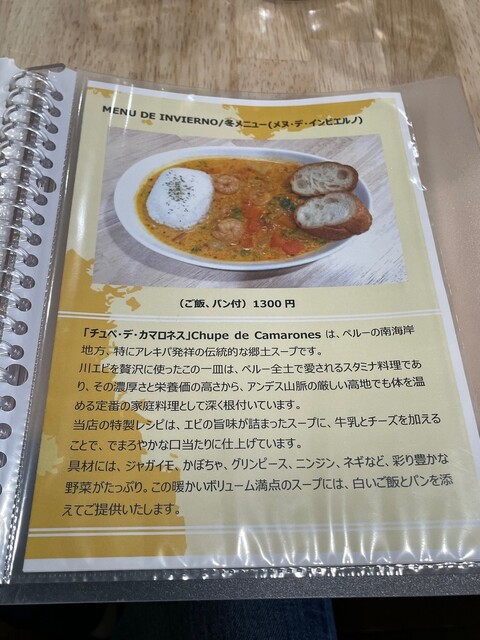 MENU DE INVIERNO/冬メニュー(メヌ・デ・インビエルノ)
(ご飯、パン付) 1300 円
「チュペ・デ・カマロネス」Chupe de Camarones は、ペルーの南海岸
地方、特にアレキパ発祥の伝統的な郷土スープです。
川エビを贅沢に使ったこの一皿は、ペルー全土で愛されるスタミナ料理であ
り、その濃厚さと栄養価の高さから、アンデス山脈の厳しい高地でも体を温
める定番の家庭料理として深く根付いています。
当店の特製レシピは、エビの旨味が詰まったスープに、牛乳とチーズを加える
ことで、でまろやかな口当たりに仕上げています。
具材には、ジャガイモ、かぼちゃ、グリンピース、ニンジン、ネギなど、彩り豊かな
野菜がたっぷり。この暖かいボリューム満点のスープには、白いご飯とパンを添
えてご提供いたします。